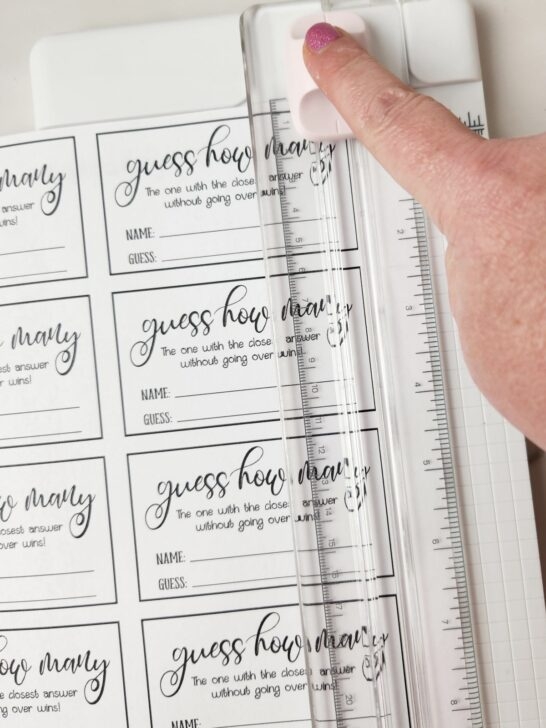 many
answer
wins!
guess how many
The one with the closest answer
without going over wins!
NAME:
GUESS:
many
sest answer
r wins!
guess how many
The one with the closest answer
without going over wins!
NAME:
GUESS:
w many
losest answer
over wins!
guess how many
The one with the closest answer
without going over wins!
NAME:
GUESS:
ow many
closest answer
over wins!
guess how many
The one with the closest answer
without going over wins!
NAME:
2
4
5
6
8